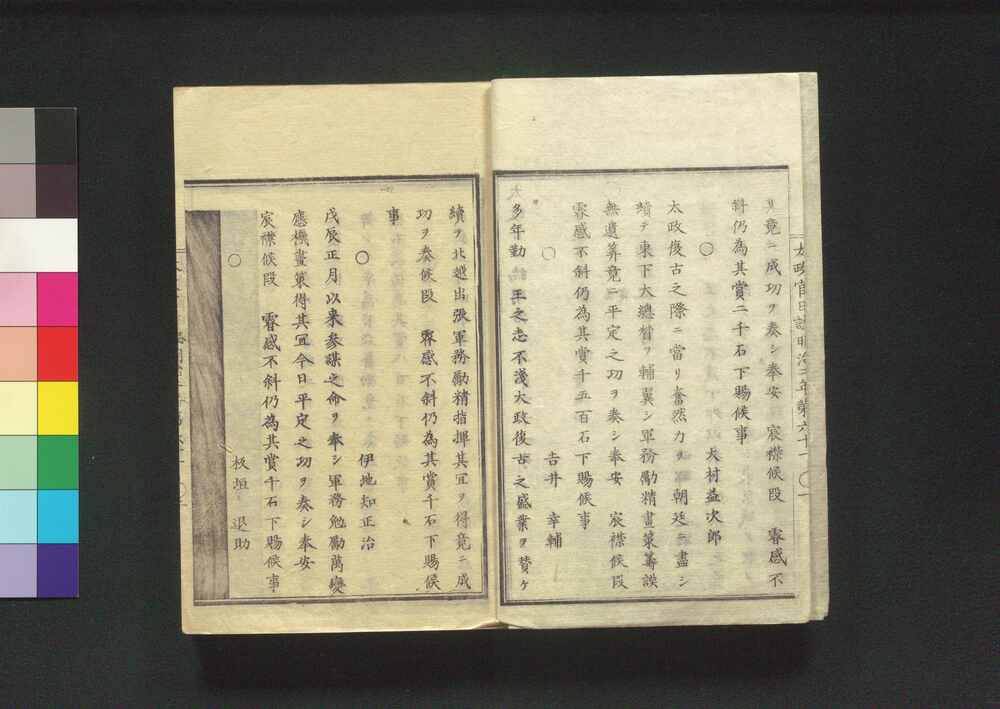 太政官日誌明治二年第六十一
リ竟ニ成功ヲ奏シ奉安　宸襟候段　睿感不
斜仍為其賞二千石下賜候事
○
大村益次郎
太政復古之際ニ當リ奮然力ヲ　朝廷ニ盡シ
續テ東下大總督ヲ輔翼シ軍務勵精畫策籌謨
無遺算竟ニ平定之功ヲ奏シ奉安　宸襟候段
睿感不斜仍為其賞千五百石下賜候事
○
吉井　幸輔
多年勤　王之志不淺太政復古之盛業ヲ賛ケ
續ヲ北越出張軍務勵精指揮其冝ヲ得竟ニ成
功ヲ奏候段　睿感不斜仍為其賞千石下賜候
事
○
伊地知正治
戊辰正月以来參謀之命ヲ奉シ軍務勉勵萬變
應機畫策得其冝今日平定之功ヲ奏シ奉安
宸襟候段　睿感不斜仍為其賞千石下賜候事
○
板垣　退助